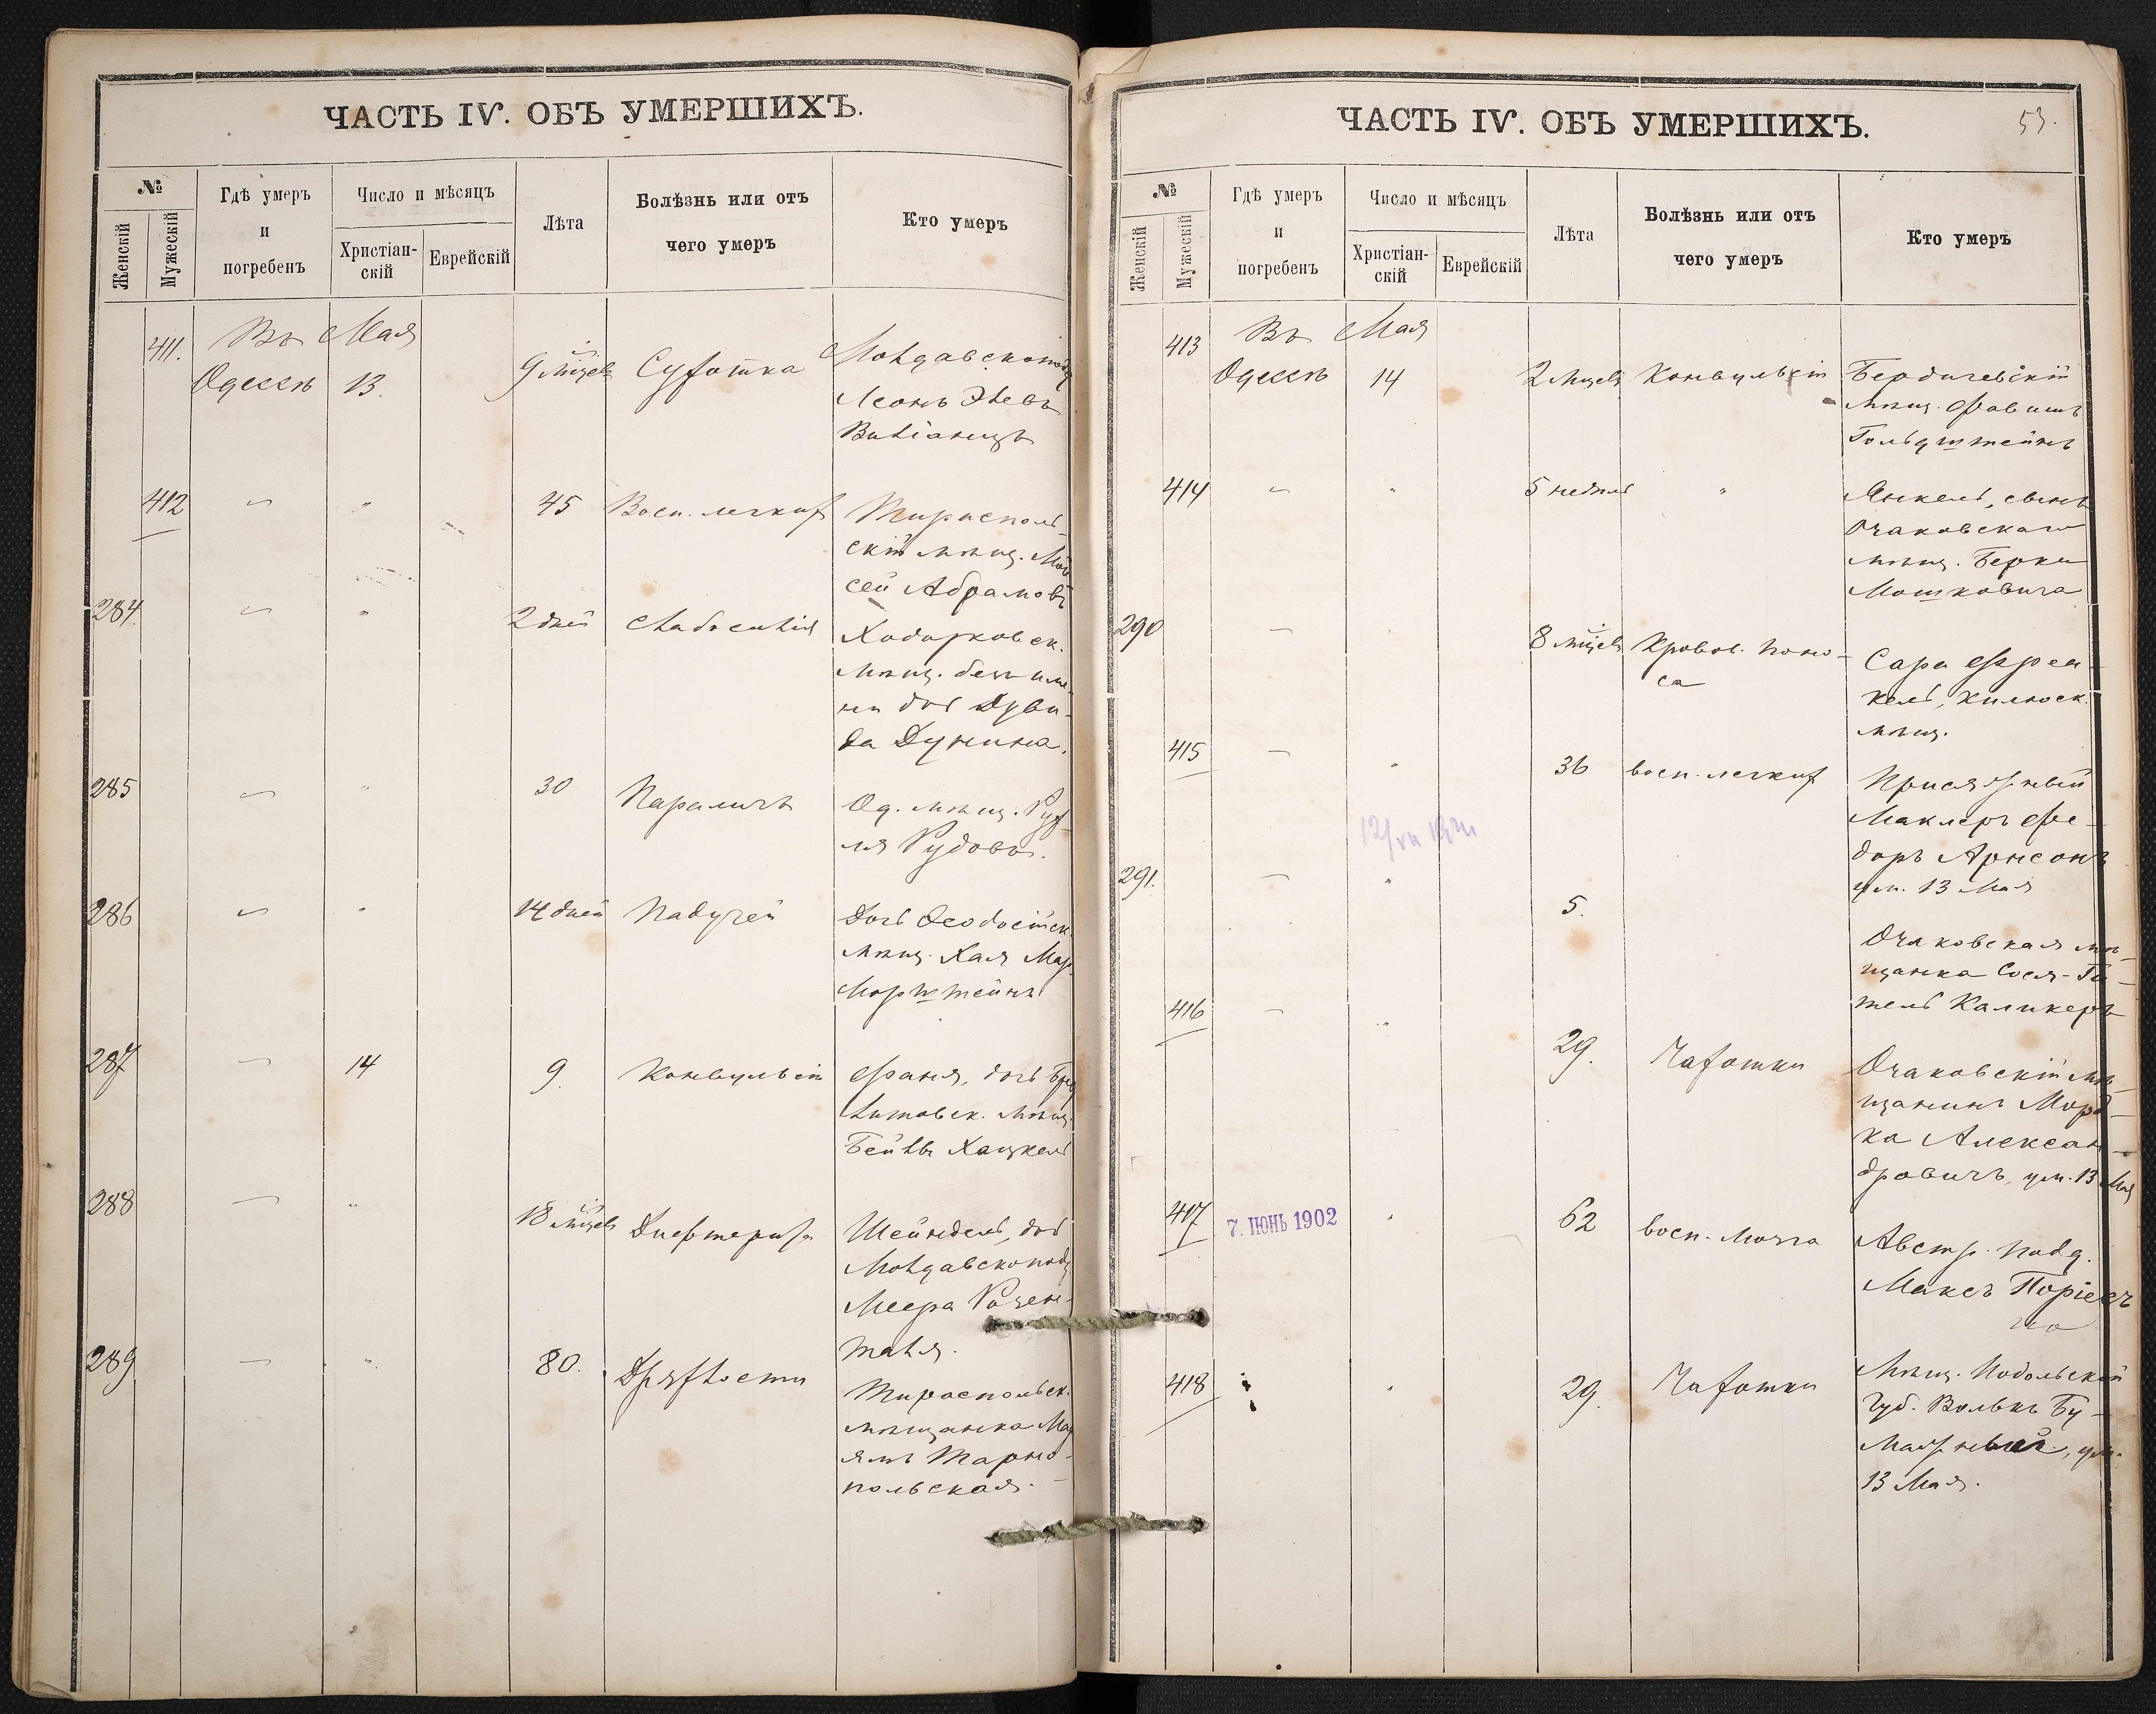 ЧАСТЬ IV. ОБЪ УМЕРШИХЪ.
№
Женскій
Мужескій
Гдѣ умеръ
и
погребенъ
Число и мѣсяцъ
Христіан-
скій
Еврейскій
Лѣта
Болѣзнь или отъ
чего умеръ
Кто умеръ
411.
Въ
Одессѣ
Мая
13.
9 мцевъ
Сухотка
Молдавскопод
Леонъ
412
〃
〃
45
Восп. легких
Тирасполь
скій мѣщ. Мой
сей Абрамовъ
284.
〃
〃
2 дней
Слабосилія
Ходорковск.
мѣщ. безъ име-
ни дочь Дуви-
да Дунина.
285
〃
〃
30
Параличъ
Од. мѣщ. Рух-
ля Рудова.
286
〃
〃
14 дней
Падучей
Дочь Ѳеодосійск.
мѣщ. Хая Мар
морштейнъ
287
〃
14
9.
Конвульсіи
Фаня, дочь
Литовск. мѣщ.
Бейлы Хацкель
288
〃
〃
18 мцевъ
Дифтерита
Шейндель, доч
Молдавскопод
Меера Розен-
таля.
289
〃
〃
80.
Дряхлости
Тираспольск.
мѣщанка Мар
ямъ Тарно-
польская.
ЧАСТЬ IV. ОБЪ УМЕРШИХЪ.
53.
№
Женскій
Мужескій
Гдѣ умеръ
и
погребенъ
Число и мѣсяцъ
Христіан-
скій
Еврейскій
Лѣта
Болѣзнь или отъ
чего умеръ
Кто умеръ
413
Въ
Одессѣ
Мая
14
2 мцевъ
Конвульсіи
Бердичевскій
мѣщ. Фавишъ
Гольдштейнъ
414
〃
〃
5 недѣль
〃
Янкель, сынъ
Очаковскаго
мѣщ. Берки
Мошковича
290
〃
〃
8 мцевъ
Кровав. поно-
са
Сара Френ-
кель,
мѣщ.
415
〃
〃
36
восп. легких
Присяжный
Маклеръ Фе-
доръ Арнсонъ
ум. 13 Мая
291.
〃
〃
5.
Очаковская мѣ-
щанка Сося-Ги-
тель Каликеръ
416
〃
〃
29.
Чахотки
Очаковскій мѣ-
щанинъ Морд-
ка Алексан-
дровичъ, ум. 13 Мая
417
7. ІЮНЬ 1902
〃
62
восп. мозга
Австр. подд.
Максъ
418
〃
29.
Чахотки
Мѣщ. Подольской
Губ. Вольвъ Бу-
мажный, ум.
13 Мая.